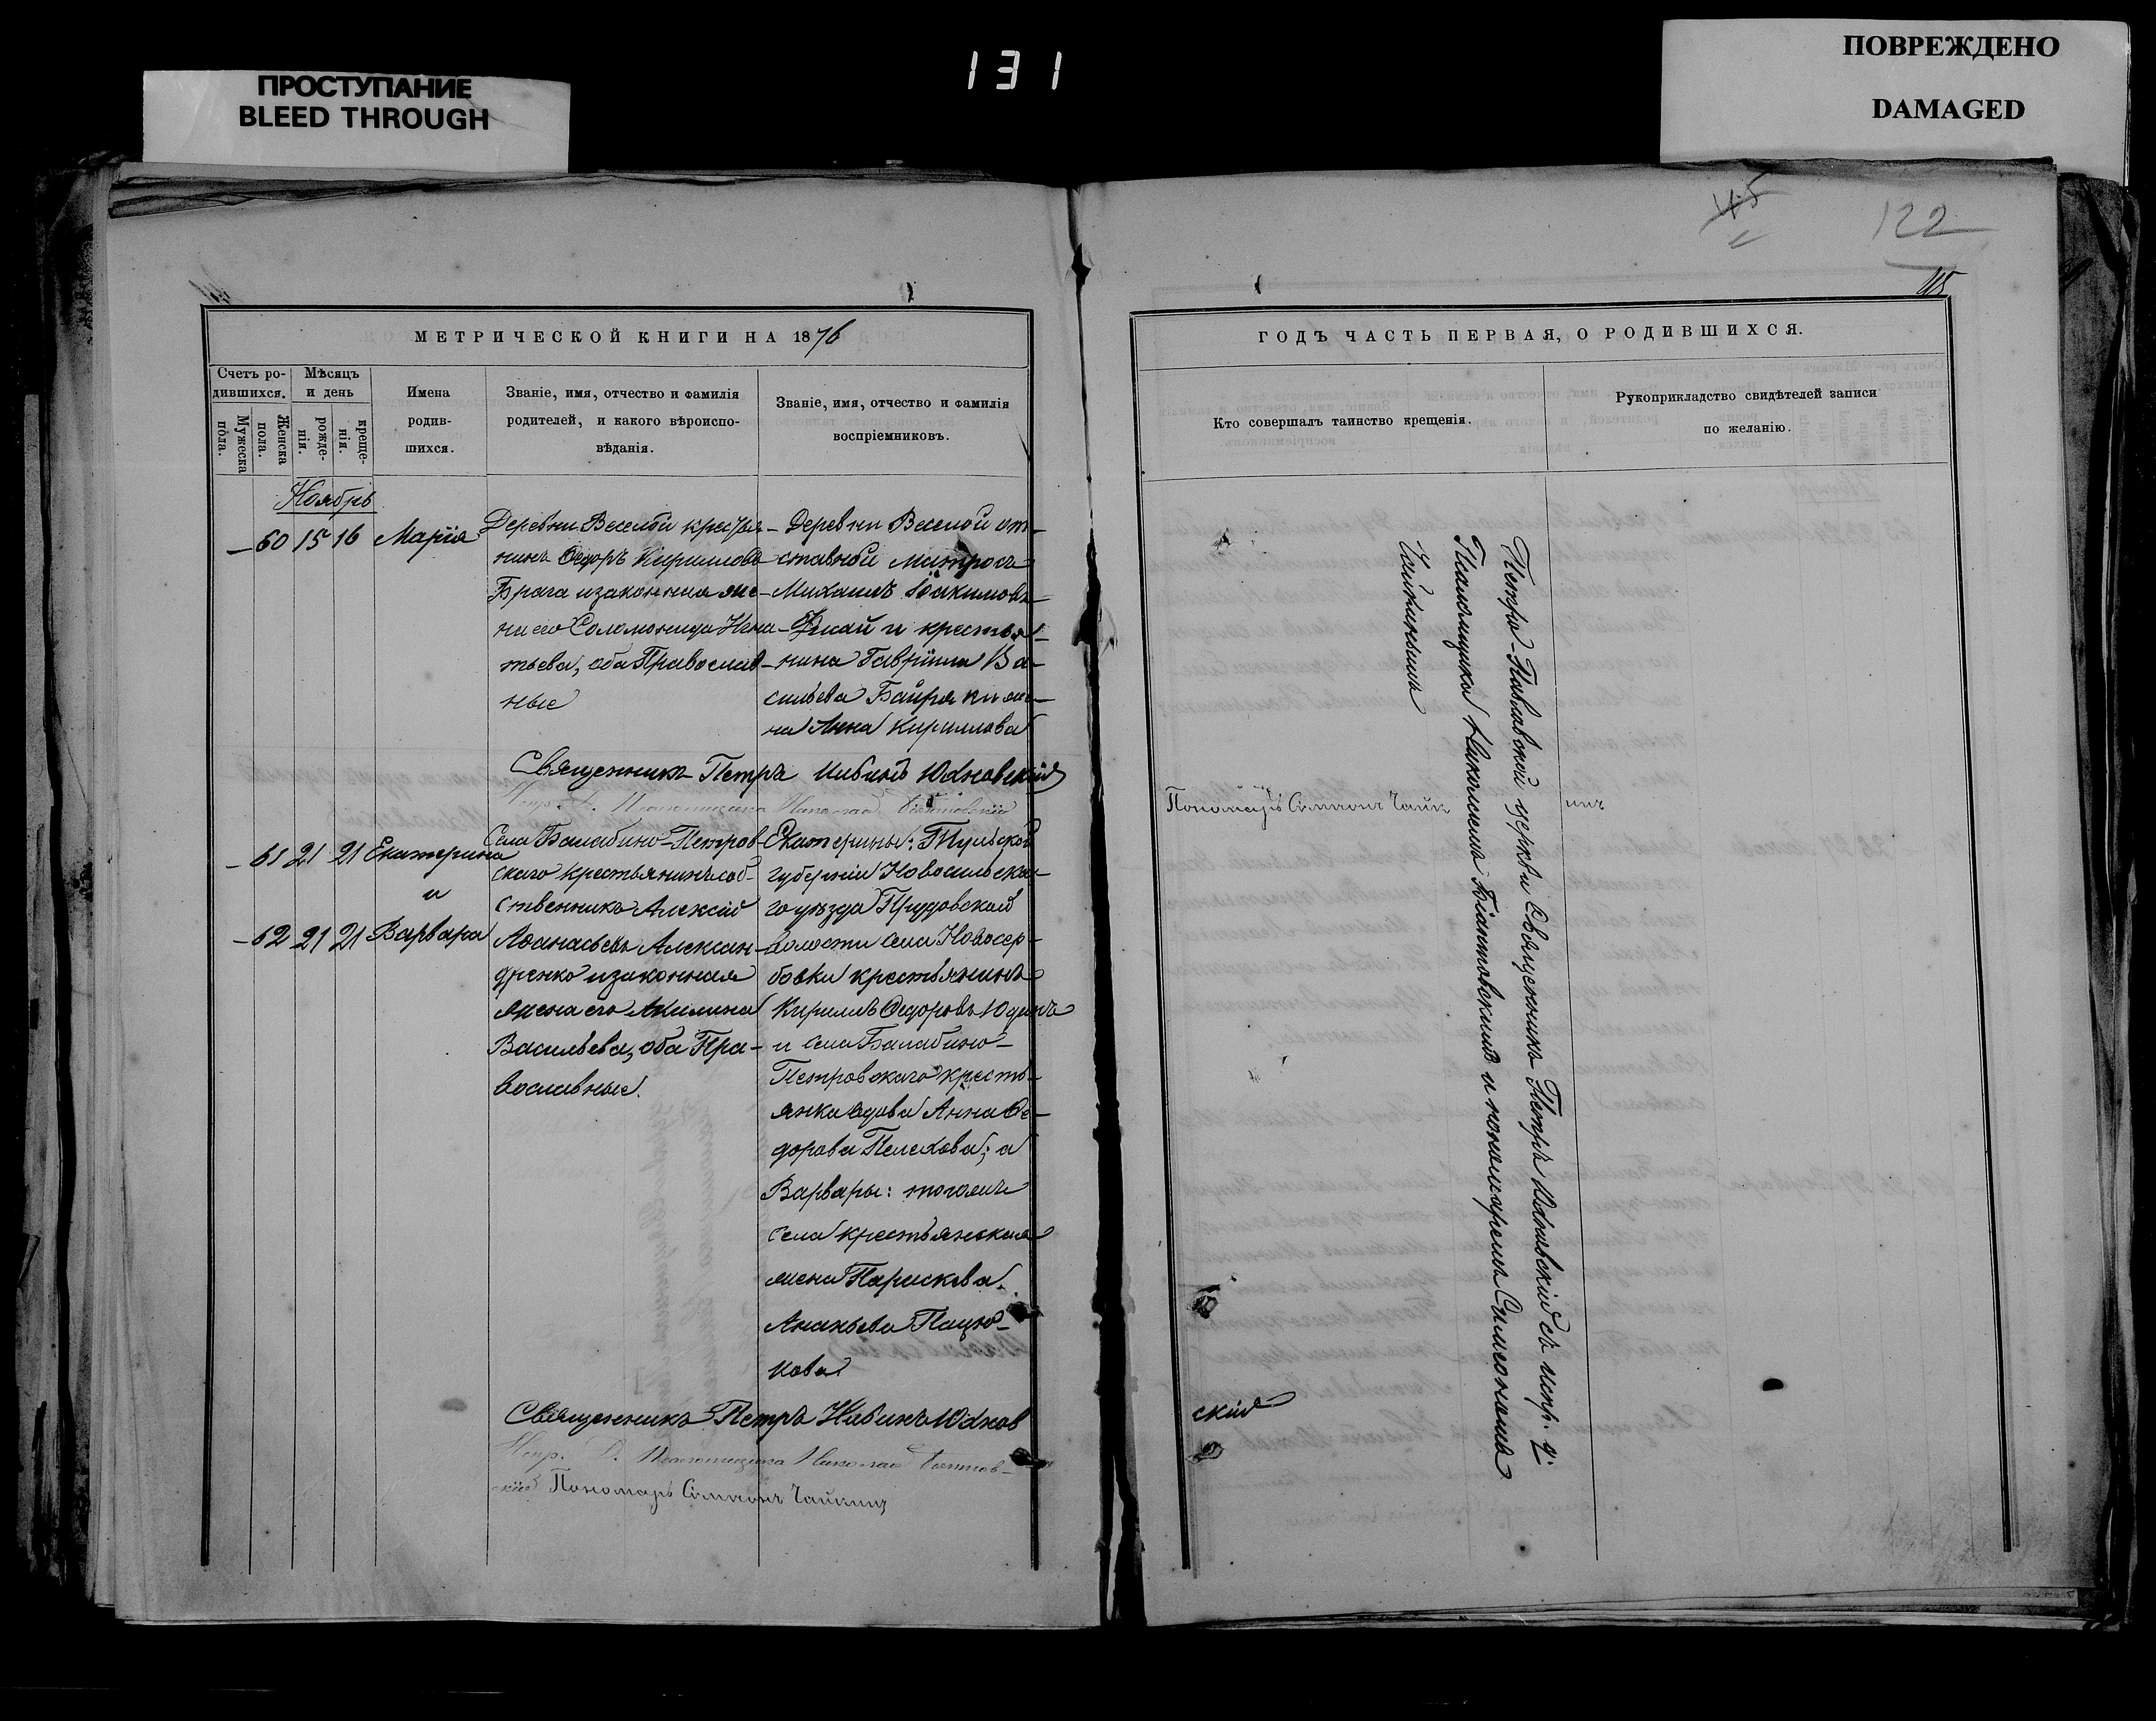 131
ПРОСТУПАНИЕ
BLEED THROUGH
ПОВРЕЖДЕНО
DAMAGED
45
122
115
МЕТРИЧЕСКОЙ КНИГИ НА 1876
Счетъ ро-
дившихся.
Мужеска
пола.
Женска
пола.
Мѣсяцъ
и день
рожде-
нія.
креще-
нія.
Имена
родив-
шихся.
Званіе, имя, отчество и фамилія
родителей, и какого вѣроиспо-
вѣданія.
Званіе, имя, отчество и фамилія
воспріемниковъ.
Ноябрь
– 60 15 16 Марія
Деревни Веселой крестья-
нинъ Ѳедоръ Кирилловъ
Брага и законная же-
на его Соломонида Игна-
тьева, оба Православ-
ные
Деревни Веселой от-
ставной матросъ
Михаилъ Іоакимовъ
и крестья-
нина Гавріила Ва-
сильева Байрака же-
на Анна Кириллова
Священникъ Петръ Юхновскій
Испр. д. Псаломщика Николай Біантовскій
– 61 21 21 Екатерина
и
– 62 21 21 Варвара
Села Балабино-Петров-
скаго крестьянинъ соб-
ственникъ Алексій
Аѳанасьевъ Алексан-
дренко и законная
жена его Акилина
Васильева, оба Пра-
вославные.
Екатерины: Тульской
губерніи Новосильска-
го уѣзда Прудовской
волости села Новосер-
бовки крестьянинъ
Кириллъ Ѳедоровъ Юдинъ
и села Балабино-
Петровскаго кресть-
янка вдова Анна Ѳе-
дорова Пелехова; а
Варвары: тогожъ
села крестьянская
жена Параскева
Ананьева Пацю-
кова
Священникъ Петръ Юхнов
Испр. д. Псаломщика Николай Біантов-
скій Пономарь Симеонъ Чайкинъ
ГОДЪ ЧАСТЬ ПЕРВАЯ, О РОДИВШИХСЯ.
Кто совершалъ таинство крещенія.
Рукоприкладство свидѣтелей записи
по желанію.
Петро-Павловской церкви Священникъ Петръ Юхновскій съ испр. д.
Псаломщика Николаемъ Біантовскимъ и пономаремъ Симеономъ
Чайкинымъ
Пономарь Симеонъ Чайк инъ
скій